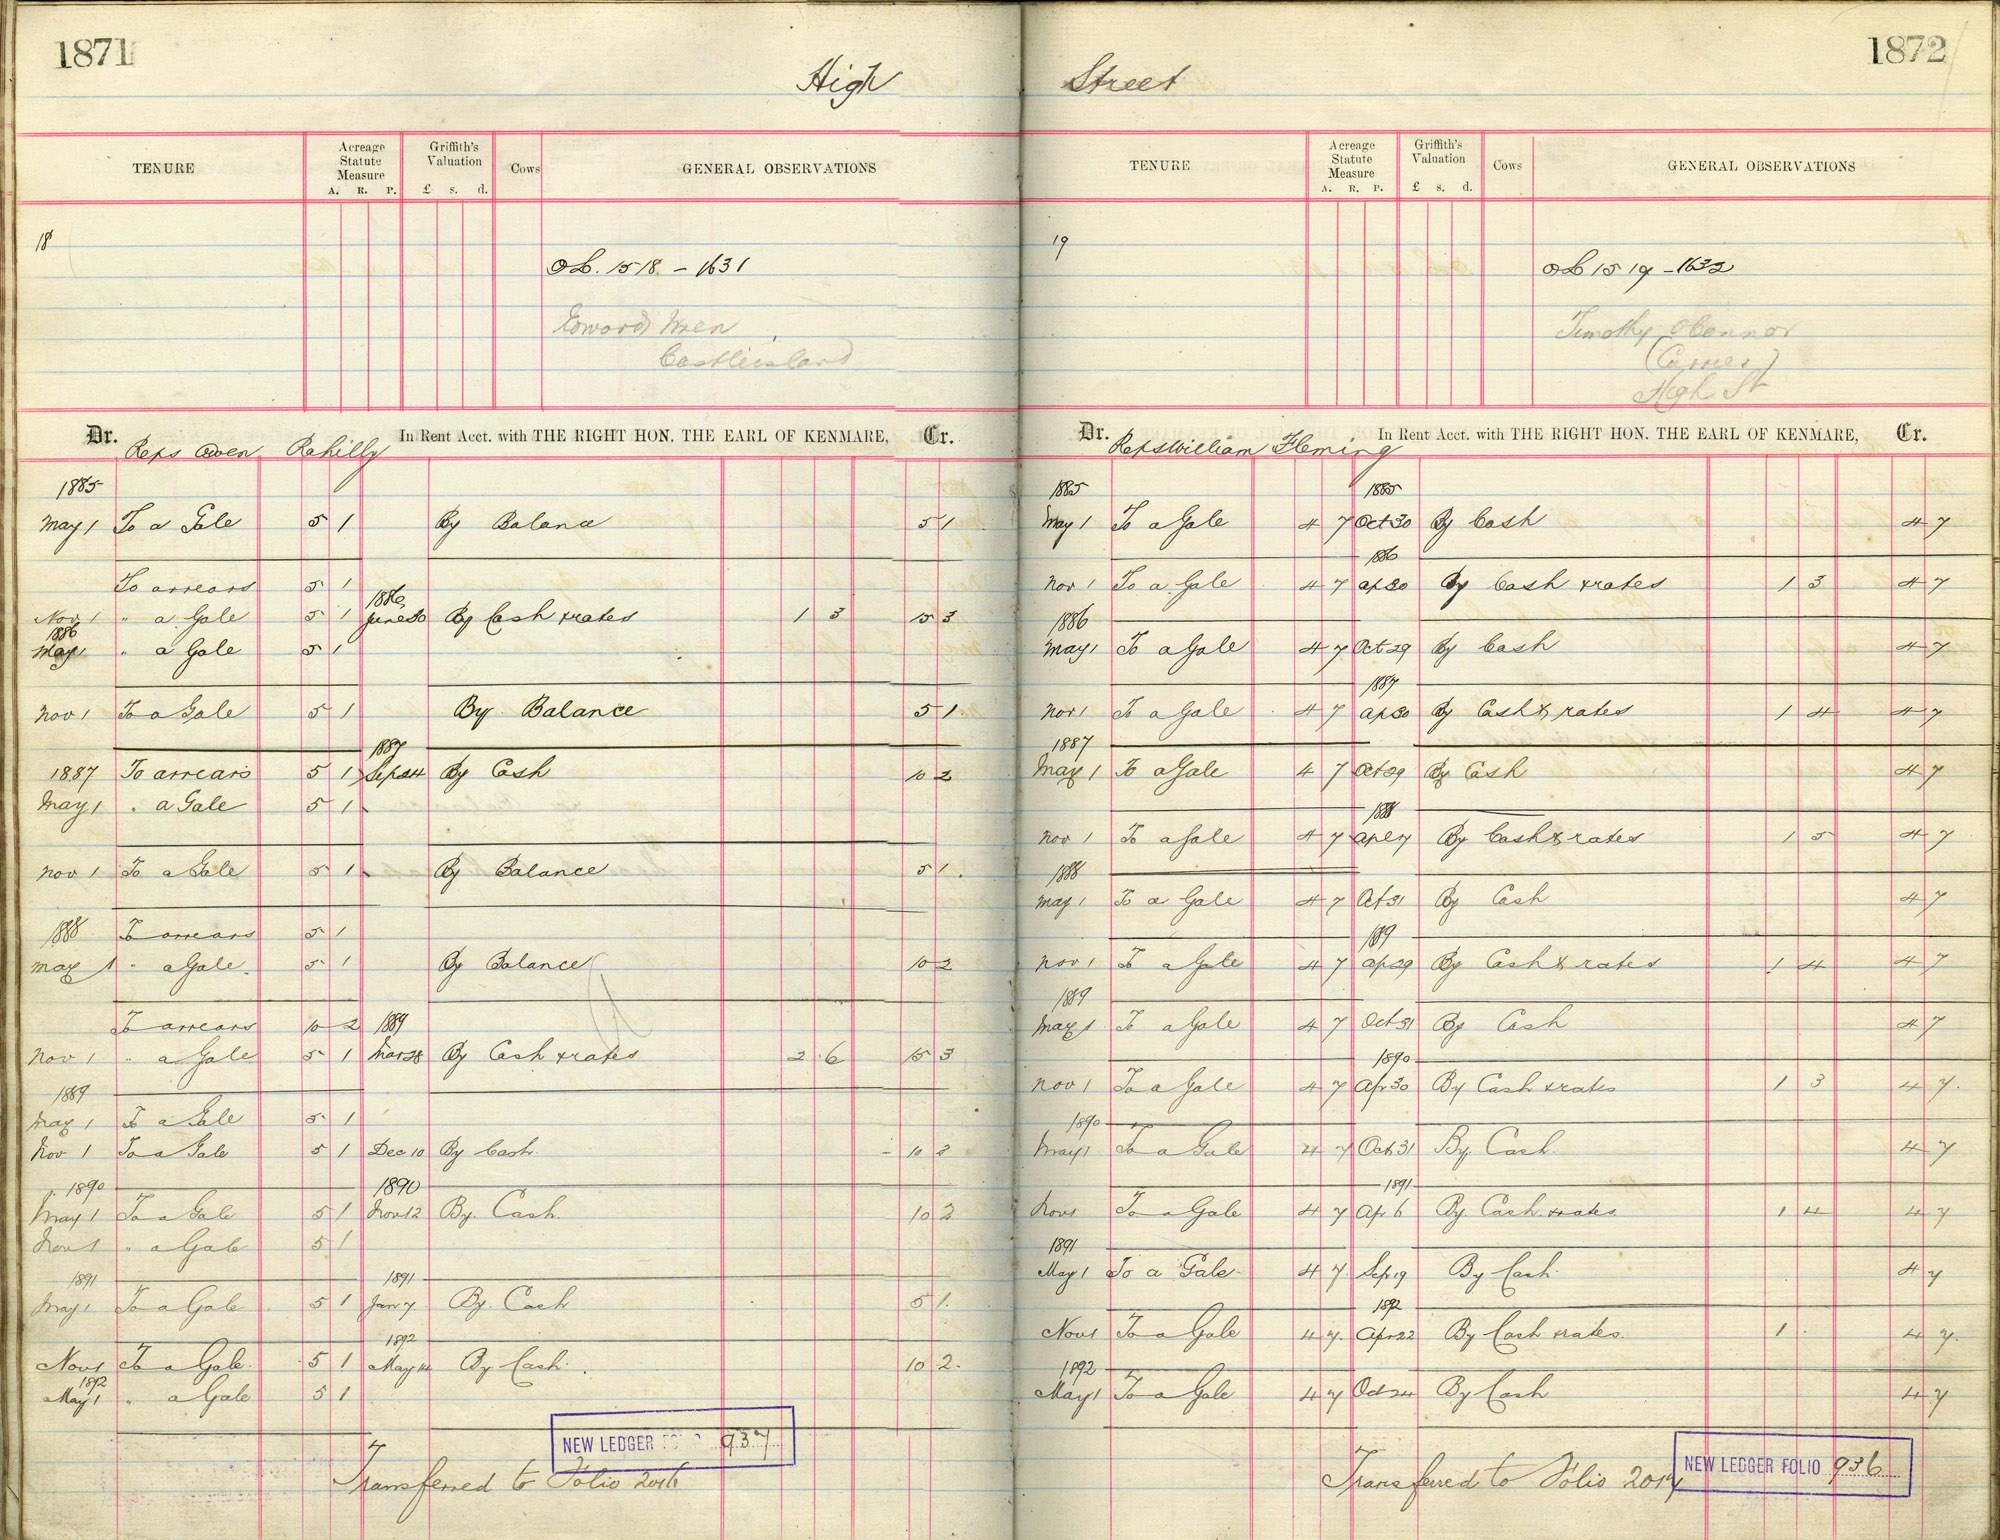 1871
High
TENURE
Acreage Statute Measure
A. R. P.
Griffith's Valuation
£ s. d.
Cows
GENERAL OBSERVATIONS
18
OL. 1518 - 1631
Edward
Castleisland
Dr. In Rent Acct. with THE RIGHT HON. THE EARL OF KENMARE, Cr.
Reps Owen Rahilly
1885
May 1 To a Gale 5 1 By Balance 5 1
To arrears 5 1
1886
Nov 1 " a Gale 5 1 June 30 By Cash & rates 1 3 15 3
1886
May 1 " a Gale 5 1
Nov 1 To a Gale 5 1 By Balance 5 1
1887
1887 To arrears 5 1 Sep 24 By Cash 10 2
May 1 " a Gale 5 1
Nov 1 To a Gale 5 1 By Balance 5 1
1888 To arrears 5 1
May 1 " a Gale 5 1 By Balance 10 2
To arrears 10 2 1889
Nov 1 " a Gale 5 1 Mar 28 By Cash & rates 2 6 15 3
1889
May 1 To a Gale 5 1
Nov 1 To a Gale 5 1 Dec 10 By Cash 10 2
1890 1890
May 1 To a Gale 5 1 Nov 12 By Cash 10 2
Nov 1 " a Gale 5 1
1891 1891
May 1 To a Gale 5 1 Jan 7 By Cash 5 1
1892
Nov 1 To a Gale 5 1 May 14 By Cash 10 2
1892
May 1 " a Gale 5 1
NEW LEDGER FOLIO 937
Transferred to Folio 2016
1872
Street
TENURE
Acreage Statute Measure
A. R. P.
Griffith's Valuation
£ s. d.
Cows
GENERAL OBSERVATIONS
19
OL 1519 - 1632
Timothy O'Connor
(Carrier)
High St
Dr. In Rent Acct. with THE RIGHT HON. THE EARL OF KENMARE, Cr.
Reps William Fleming
1885 1885
May 1 To a Gale 4 7 Oct 30 By Cash 4 7
1886
Nov 1 To a Gale 4 7 Ap 30 By Cash & rates 1 3 4 7
1886
May 1 To a Gale 4 7 Oct 29 By Cash 4 7
1887
Nov 1 To a Gale 4 7 Ap 30 By Cash & rates 1 4 4 7
1887
May 1 To a Gale 4 7 Oct 29 By Cash 4 7
1888
Nov 1 To a Gale 4 7 By Cash & rates 1 5 4 7
1888
May 1 To a Gale 4 7 Oct 31 By Cash 4 7
1889
Nov 1 To a Gale 4 7 Ap 29 By Cash & rates 1 4 4 7
1889
May 1 To a Gale 4 7 Oct 31 By Cash 4 7
1890
Nov 1 To a Gale 4 7 Ap 30 By Cash & rates 1 3 4 7
1890
May 1 To a Gale 4 7 Oct 31 By Cash 4 7
1891
Nov 1 To a Gale 4 7 Ap 6 By Cash & rates 1 4 4 7
1891
May 1 To a Gale 4 7 Sep 19 By Cash 4 7
1892
Nov 1 To a Gale 4 7 Apr 22 By Cash & rates 1 4 7
1892
May 1 To a Gale 4 7 Oct 24 By Cash 4 7
NEW LEDGER FOLIO 936
Transferred to Folio 2017